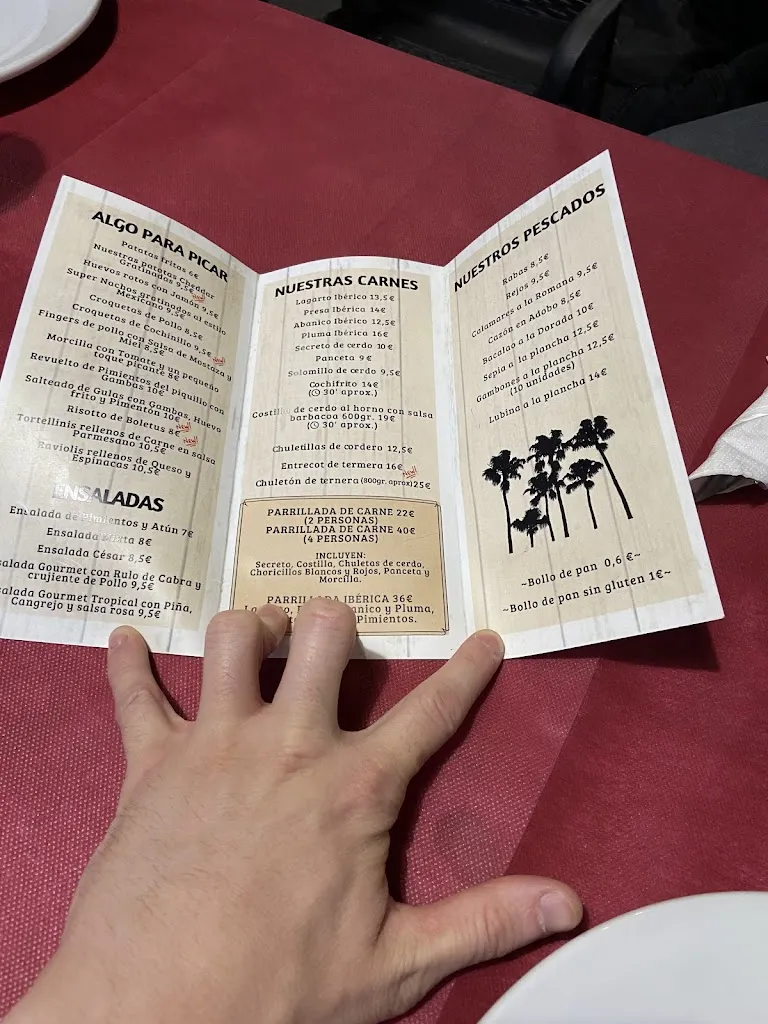 ALGO PARA PICAR
Patatas fritas 6€
Nuestras patatas Cheddar
Gratinadas 9,5€ New!
Huevos rotos con Jamón 9,5€
Super Nachos gratinados al estilo
Mexicano 9,5€
Croquetas de Pollo 8,5€
Croquetas de Cochinillo 9,5€ New!
Fingers de pollo con Salsa de Mostaza y
Miel 8,5€
Morcilla con Tomate y un pequeño
toque picante 8€
Revuelto de Pimientos del piquillo con
Gambas 10€
Salteado de Gulas con Gambas, Huevo
frito y Pimentón 10€ New!
Risotto de Boletus 8€ New!
Tortellinis rellenos de Carne en salsa
Parmesano 10,5€
Raviolis rellenos de Queso y
Espinacas 10,5€
ENSALADAS
Ensalada de Pimientos y Atún 7€
Ensalada Mixta 8€
Ensalada César 8,5€
Gourmet con Rulo de Cabra y
crujiente de Pollo 9,5€
Gourmet Tropical con Piña,
Cangrejo y salsa rosa 9,5€
NUESTRAS CARNES
Lagarto Ibérico 13,5€
Presa Ibérica 14€
Abanico Ibérico 12,5€
Pluma Ibérica 16€
Secreto de cerdo 10€
Panceta 9€
Solomillo de cerdo 9,5€
Cochifrito 14€
(30' aprox.)
Costilla de cerdo al horno con salsa
barbacoa 600gr. 19€
(30' aprox.)
Chuletillas de cordero 12,5€
Entrecot de ternera 16€ New!
Chuletón de ternera (800gr. aprox) 25€
PARRILLADA DE CARNE 22€
(2 PERSONAS)
PARRILLADA DE CARNE 40€
(4 PERSONAS)
INCLUYEN:
Secreto, Costilla, Chuletas de cerdo,
Choricillos Blancos y Rojos, Panceta y
Morcilla.
PARRILLADA IBÉRICA 36€
y Pluma,
Pimientos.
NUESTROS PESCADOS
Rabas 8,5€
Rejos 9,5€
Calamares a la Romana 9,5€
Cazón en Adobo 8,5€
Bacalao a la Dorada 10€
Sepia a la plancha 12,5€
Gambones a la plancha 12,5€
(10 unidades)
Lubina a la plancha 14€
~Bollo de pan 0,6 €~
~Bollo de pan sin gluten 1€~